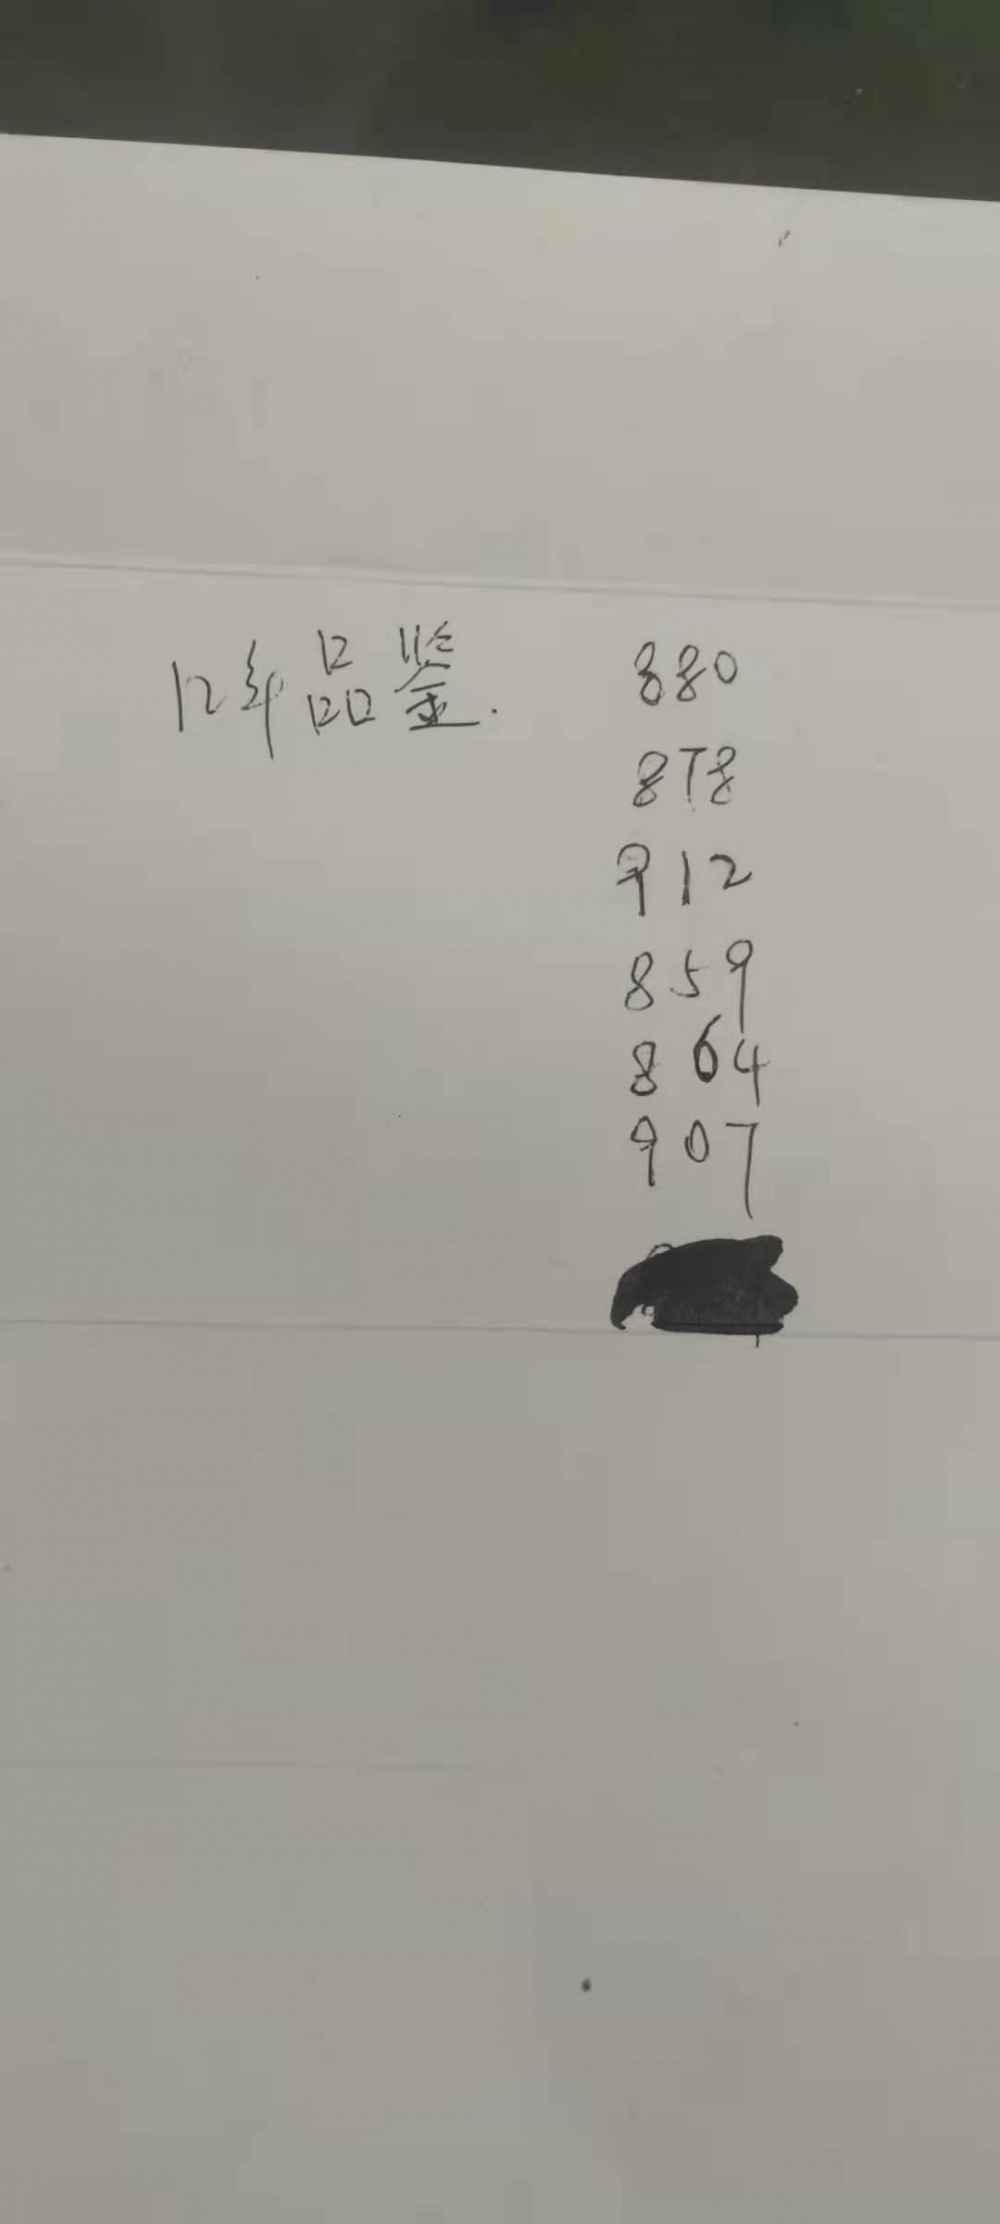 12年品鉴. 880
878
912
859
864
907